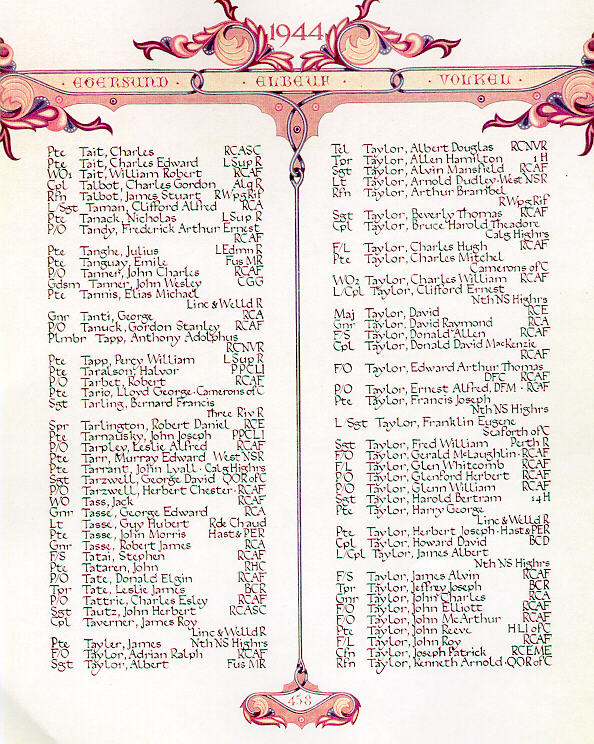 1944
EGERSUND · ELBEUF · VOLKEL
Ptc Tait, Charles RCASC
Ptc Tait, Charles Edward L Sup R
WO1 Tait, William Robert RCAF
Cpl Talbot, Charles Gordon Alq R
Rfn Talbot, James Stuart RWpg Rif
L/Sgt Taman, Clifford Alfred RCA
Ptc Tanack, Nicholas L Sup R
P/O Tandy, Frederick Arthur Ernest
RCAF
Ptc Tanghe, Julius L Edmn R
Ptc Tanguay, Emile Fus MR
P/O Tanner, John Charles RCAF
Gdsm Tanner, John Wesley CGG
Ptc Tannis, Elias Michael
Linc & Welld R
Gnr Tanti, George RCA
P/O Tanuck, Gordon Stanley RCAF
Plmbr Tapp, Anthony Adolphus
RCNVR
Ptc Tapp, Percy William L Sup R
Ptc Taralson, Halvor PPCLI
P/O Tarbet, Robert RCAF
Ptc Tario, Lloyd George · Camerons of C
Sgt Tarling, Bernard Francis
Three Riv R
Spr Tarlington, Robert Daniel RCE
Ptc Tarnausky, John Joseph PPCLI
P/O Tarpley, Leslie Alfred RCAF
Ptc Tarr, Murray Edward West NSR
Ptc Tarrant, John Lyall · Calg Highrs
Sgt Tarzwell, George David QOR of C
P/O Tarzwell, Herbert Chester · RCAF
WO Tass, Jack RCAF
Gnr Tasse, George Edward RCA
Lt Tasse, Guy Hubert R de Chaud
Ptc Tasse, John Morris Hast & PER
Gnr Tasse, Robert James RCA
F/S Tatai, Stephen RCAF
Ptc Tataren, John RHC
P/O Tate, Donald Elgin RCAF
Tpr Tate, Leslie James BCR
P/O Tattrie, Charles Esley RCAF
Sgt Tautz, John Herbert RCASC
Cpl Taverner, James Roy
Linc & Welld R
Ptc Tayler, James Nth NS Highrs
F/O Taylor, Adrian Ralph RCAF
Sgt Taylor, Albert Fus MR
Tel Taylor, Albert Douglas RCNVR
Tpr Taylor, Allen Hamilton 1 H
Sgt Taylor, Alvin Mansfield RCAF
Lt Taylor, Arnold Dudley · West NSR
Rfn Taylor, Arthur Brambel
RWpg Rif
Sgt Taylor, Beverly Thomas RCAF
Cpl Taylor, Bruce Harold Theodore
Calg Highrs
F/L Taylor, Charles Hugh RCAF
Ptc Taylor, Charles Mitchel
Camerons of C
WO2 Taylor, Charles William RCAF
L/Cpl Taylor, Clifford Ernest
Nth NS Highrs
Maj Taylor, David RCE
Gnr Taylor, David Raymond RCA
F/S Taylor, Donald Allen RCAF
Cpl Taylor, Donald David MacKenzie
RCAF
F/O Taylor, Edward Arthur Thomas
DFC RCAF
P/O Taylor, Ernest Alfred, DFM · RCAF
Ptc Taylor, Francis Joseph
Nth NS Highrs
L/Sgt Taylor, Franklin Eugene
Seaforth of C
Sgt Taylor, Fred William Perth R
F/O Taylor, Gerald McLaughlin · RCAF
F/L Taylor, Glen Whitcomb RCAF
P/O Taylor, Glenford Herbert RCAF
P/O Taylor, Glenn William RCAF
Sgt Taylor, Harold Bertram 14 H
Ptc Taylor, Harry George
Linc & Welld R
Ptc Taylor, Herbert Joseph · Hast & PER
Cpl Taylor, Howard David BCD
L/Cpl Taylor, James Albert
Nth NS Highrs
F/S Taylor, James Alvin RCAF
Tpr Taylor, Jeffrey Joseph BCR
Gnr Taylor, John Charles RCA
F/O Taylor, John Elliott RCAF
F/O Taylor, John McArthur RCAF
Ptc Taylor, John Reeve HLI of C
F/L Taylor, John Roy RCAF
Cfn Taylor, Joseph Patrick RCEME
Rfn Taylor, Kenneth Arnold · QOR of C
458